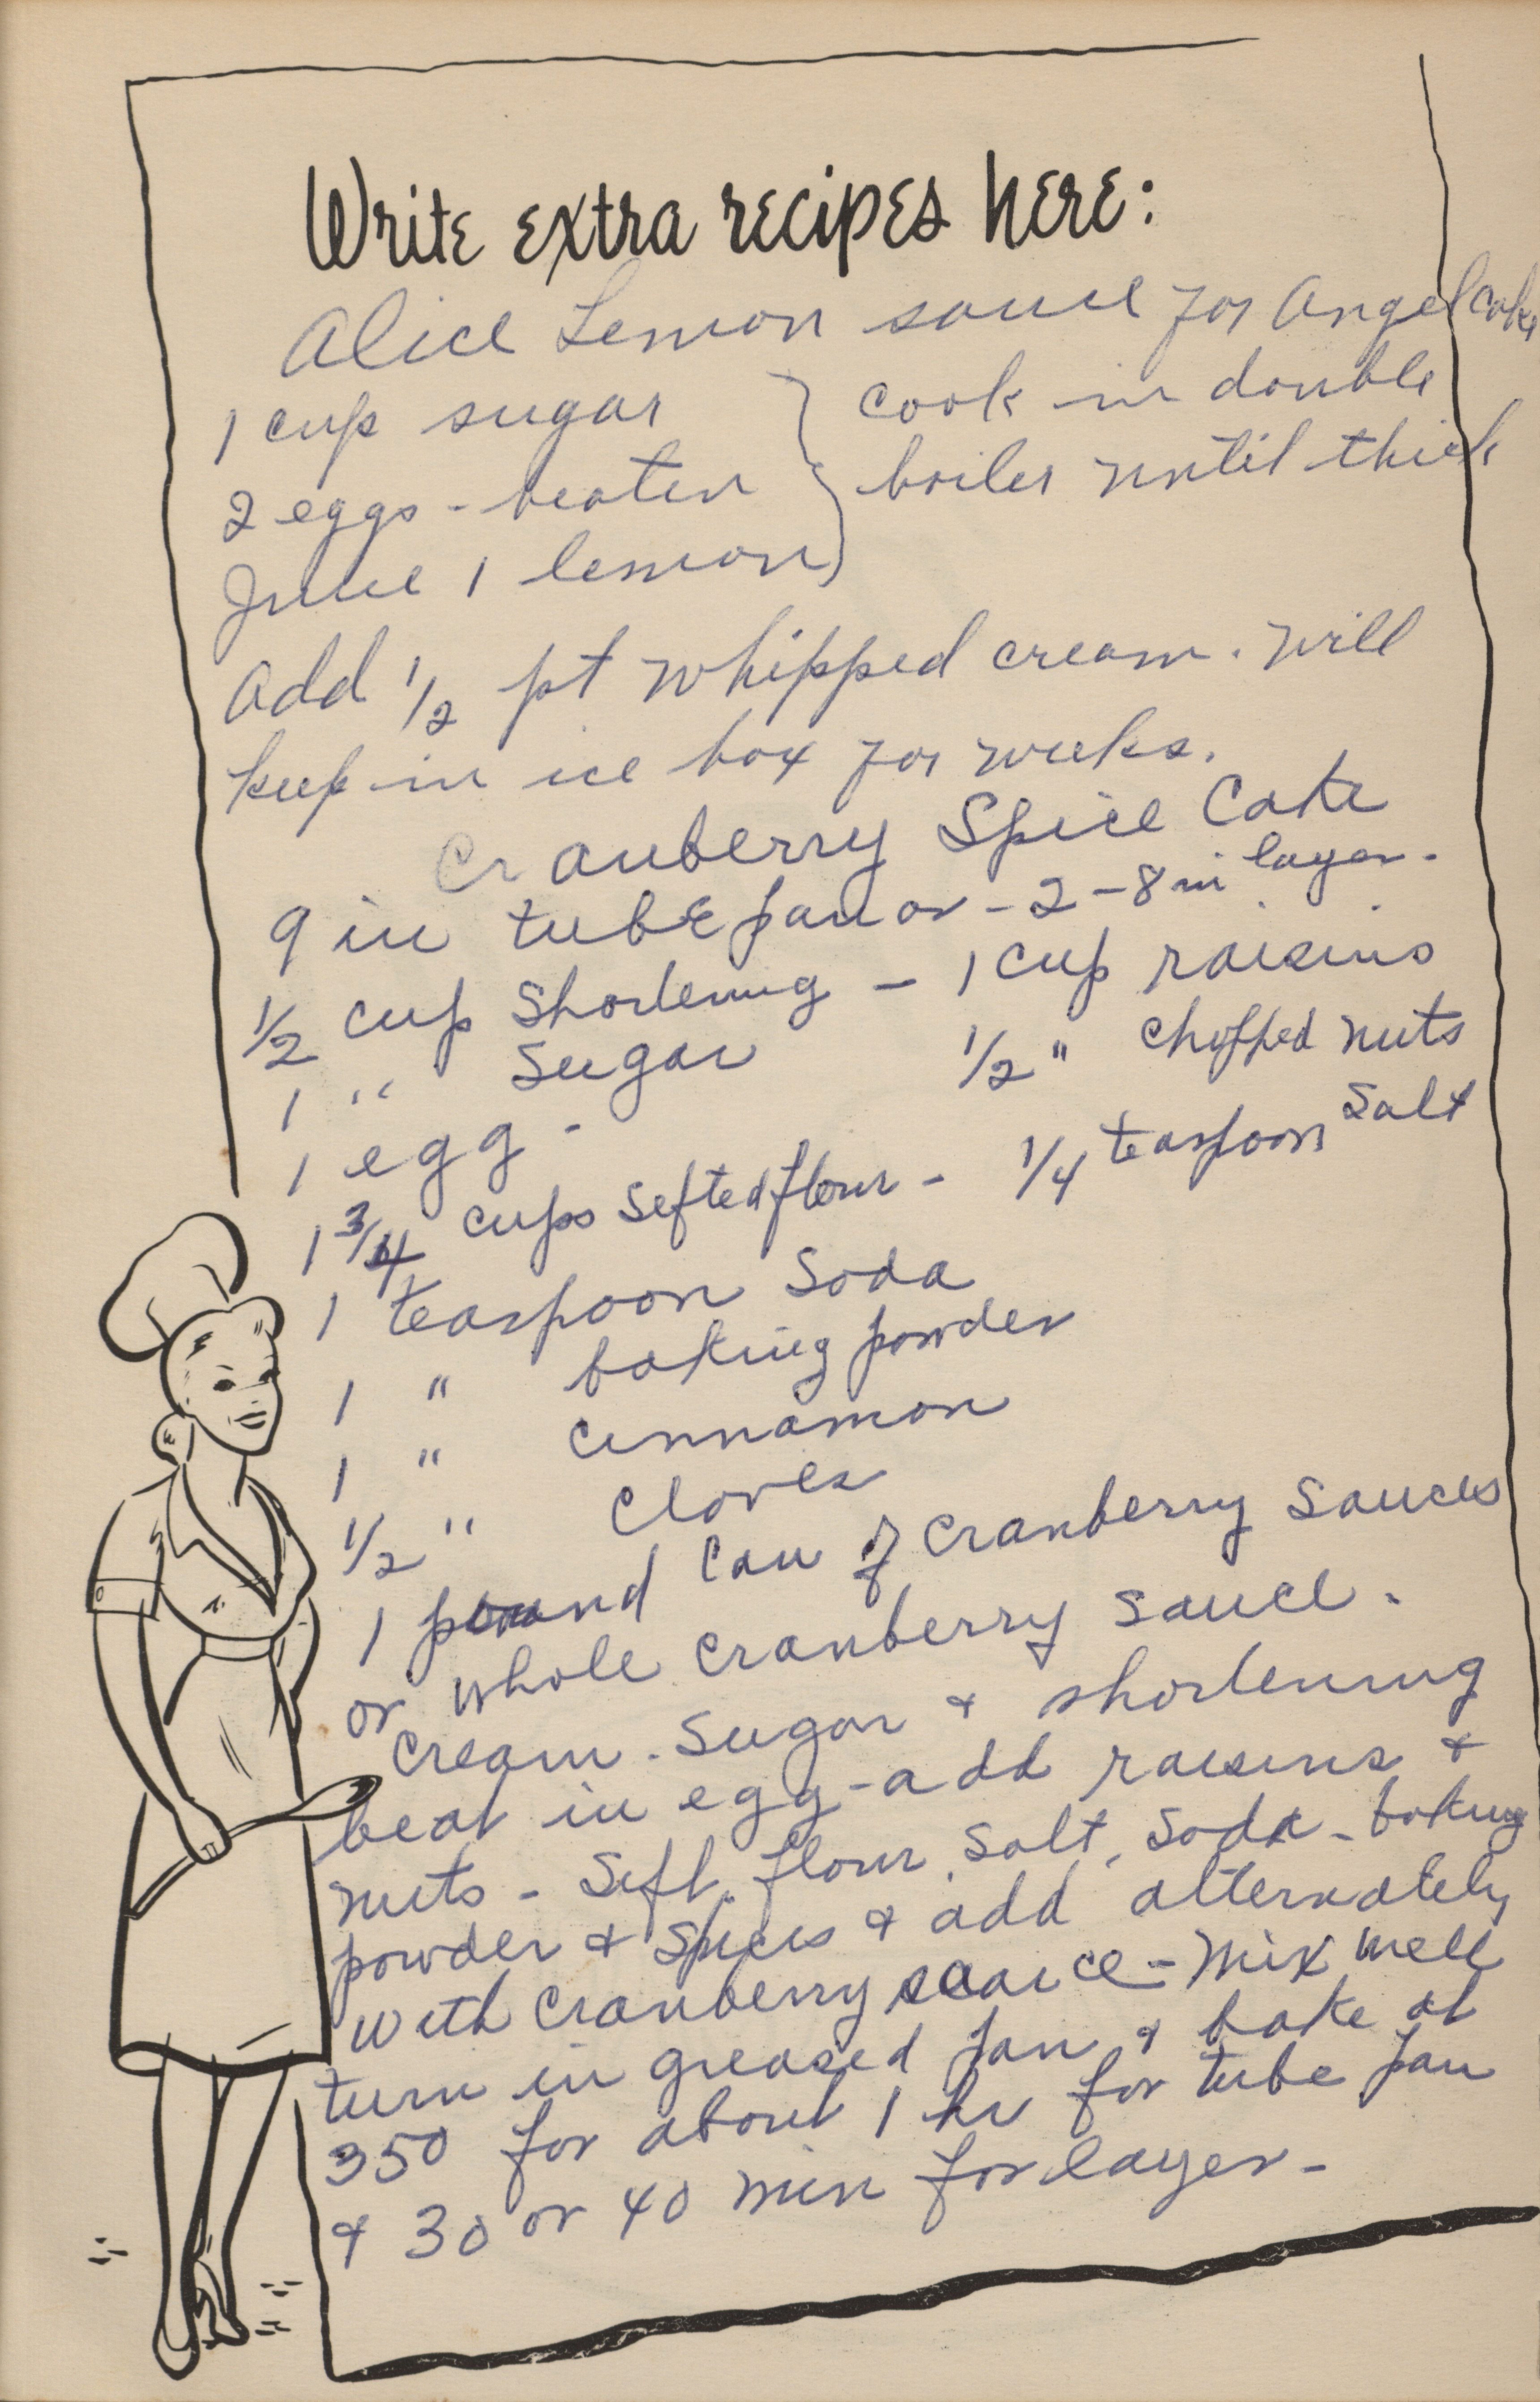 Write extra recipes here:
Alice Lemon sauce for Angel cake
1 cup sugar } cook in double
2 eggs - beaten } boiler until thick
Juice 1 lemon }
add 1/2 pt whipped cream. will
keep in ice box for weeks.
Cranberry Spice Cake
9 in tube pan or - 2 - 8 in layer.
1/2 cup Shortening - 1 cup raisins
1 " Sugar 1/2 " chopped nuts
1 egg -
1 3/4 cups Sifted flour - 1/4 teaspoon Salt
1 teaspoon Soda
1 " baking powder
1 " Cinnamon
1/2 " Cloves
1 pound can of cranberry sauces
or whole cranberry sauce.
cream. Sugar & shortening
beat in egg - add raisins &
nuts - Sift flour, Salt, Soda - baking
powder & Spices & add alternately
with cranberry sauce - Mix well
turn in greased pan & bake at
350 for about 1 hr for tube pan
& 30 or 40 min for layer -